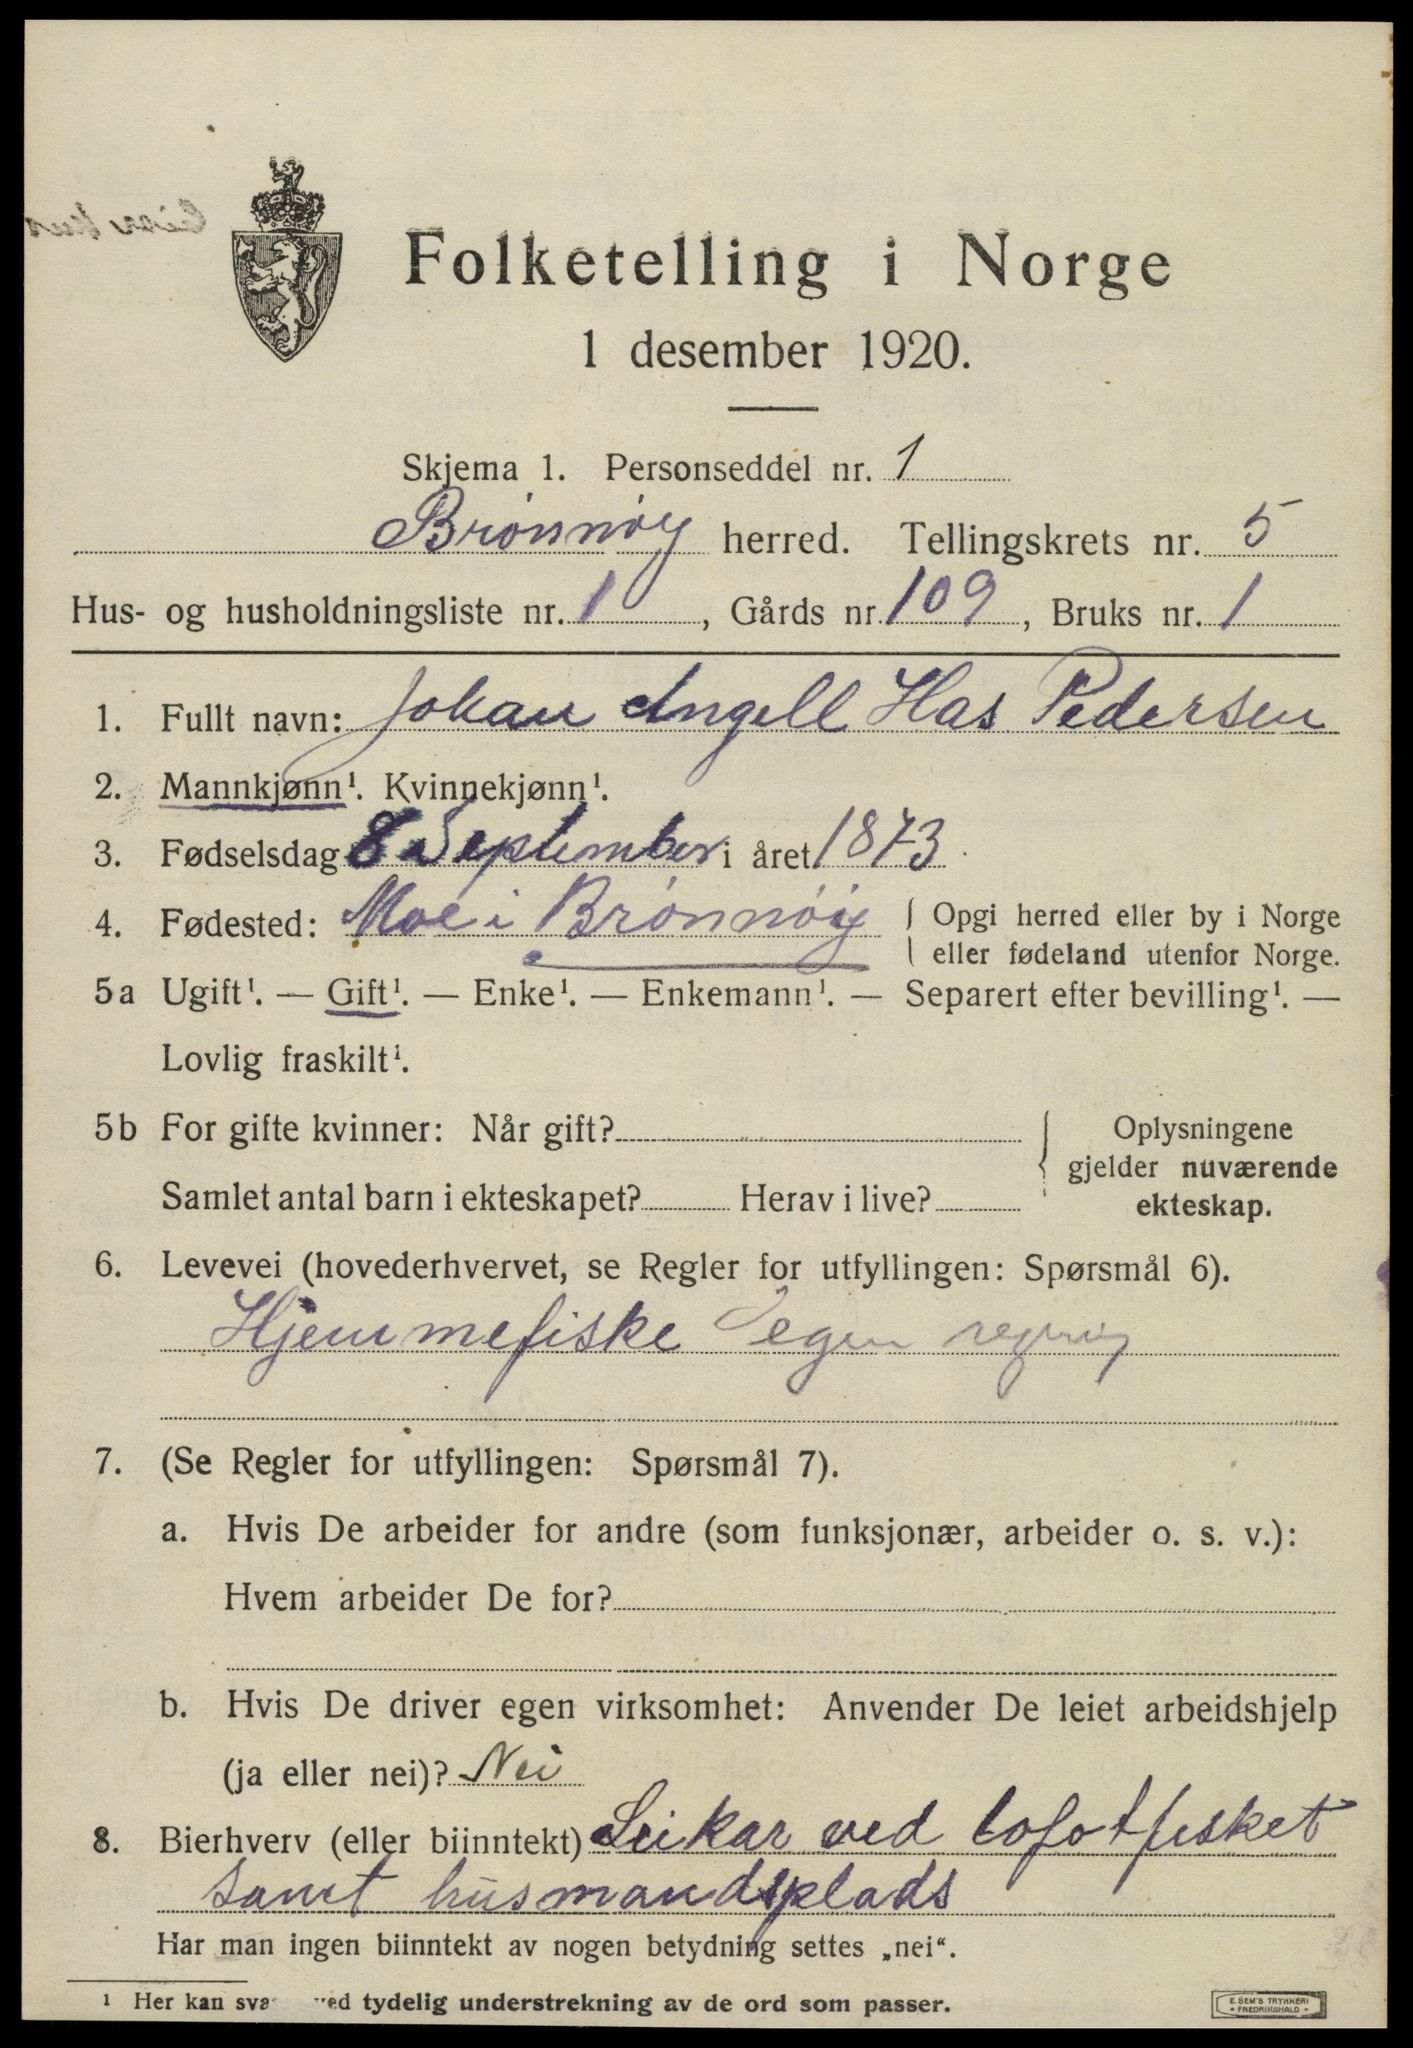 Folketelling i Norge
1 desember 1920.
Skjema 1. Personseddel nr. 1
Brønnøy herred. Tellingskrets nr. 5
Hus- og husholdningsliste nr. 1, Gårds nr. 109, Bruks nr. 1
1. Fullt navn: Johan Angell Has Pedersen
2. Mannkjønn¹. Kvinnekjønn¹.
3. Fødselsdag 8 September i året 1873
4. Fødested: Moe i Brønnøy { Opgi herred eller by i Norge
eller fødeland utenfor Norge.
5a Ugift¹. — Gift¹. — Enke¹. — Enkemann¹. — Separert efter bevilling¹. —
Lovlig fraskilt¹.
5b For gifte kvinner: Når gift?
Samlet antal barn i ekteskapet? Herav i live?
Oplysningene
gjelder nuværende
ekteskap.
6. Levevei (hovederhvervet, se Regler for utfyllingen: Spørsmål 6).
Hjemmefiske egen regning
7. (Se Regler for utfyllingen: Spørsmål 7).
a. Hvis De arbeider for andre (som funksjonær, arbeider o. s. v.):
Hvem arbeider De for?
b. Hvis De driver egen virksomhet: Anvender De leiet arbeidshjelp
(ja eller nei)? Nei
8. Bierhverv (eller biinntekt) Leikar ved lofotfisket
samt husmandsplads
Har man ingen biinntekt av nogen betydning settes „nei“.
¹ Her kan sva ved tydelig understrekning av de ord som passer.
E. SEM'S TRYKKERI
FREDRIKSHALD